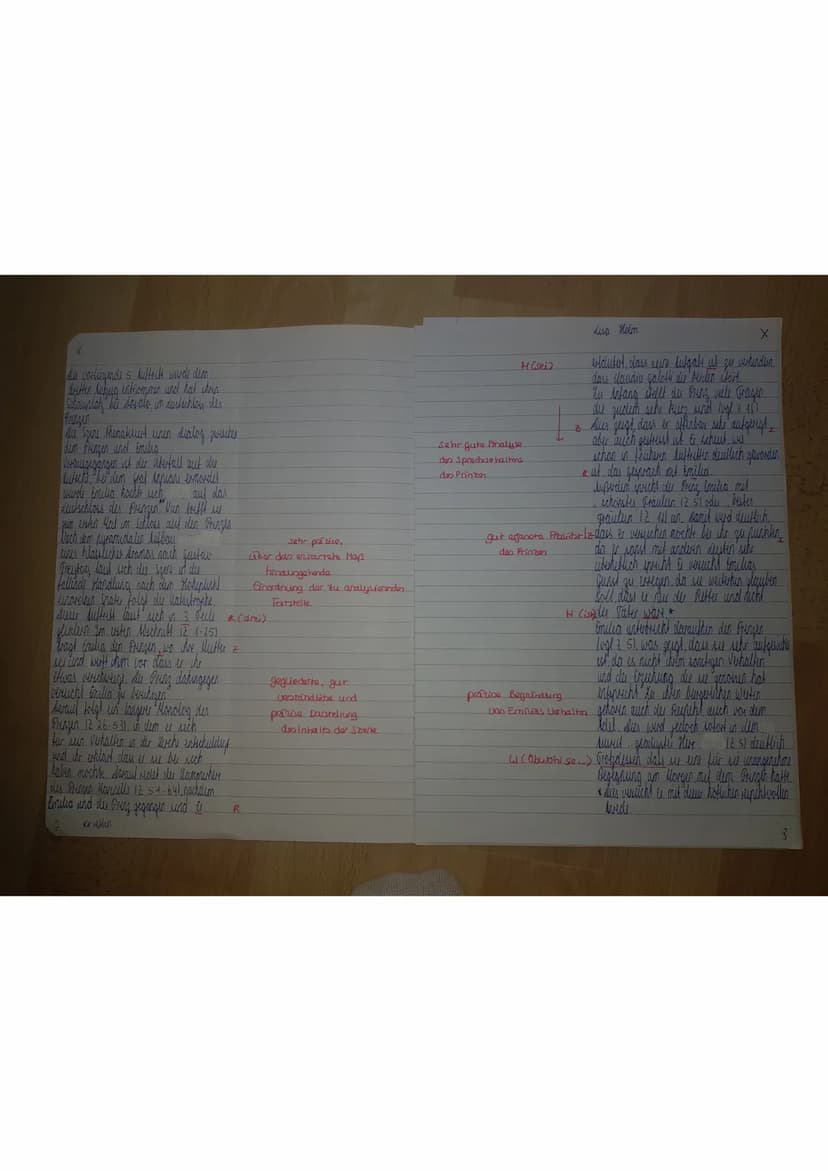 Die vorliegende 5. Auftritt wurde dem
dritten Aufzug entnommen und hat ihren
Schauplatz bei Dosalo, im Lustschloss des
Prinzen
Die Szene thematisiert einen Dialog zwischen
dem Prinzen und Emilia
Vorausgegangen ist der Überfall auf die
Kutsche, bei dem Graf Appiani ermordet
wurde Emilia auf das
Lustschloss des Prinzen. Nun trifft sie
zum ersten Mal im Schloss auf den Prinzen
Nach dem pyramidalen Aufbau
eines klassischen Dramas nach Gustav
Freytag lässt sich die Szene in die
fallende Handlung nach dem Höhepunkt
einordnen Später folgt die Katastrophe.
Dieser Auftritt lässt sich in 3 Teile
gliedern Im ersten Abschnitt (Z 1-25)
fragt Emilia den Prinzen, wo ihre Mutter
sei und wirft ihm vor dass er ihr
etwas verschweigt. Der Prinz dahingegen
versucht Emilia zu beruhigen.
Darauf folgt ein längerer Monolog des
Prinzen (Z 26-53), in dem er sich
für sein Verhalten in der Kirche entschuldigt
und ihr erklärt dass er sie bei sich
haben möchte. Darauf redet der Kammerherr
des Prinzen Marinelli (Z 54-64), nachdem
Emilia und der Prinz gegangen sind. Er
sehr präzise,
über das erwartete Maß
hinausgehende
Einordnung der zu analysierenden
Textstelle
R (drei)
Z
gegliederte, gut
verständliche und
präzise Darstellung
des Inhalts der Szene
R
Lisa Holm
X
erläutert, dass seine Aufgabe ist zu verhindern
dass Claudia Galotti die beiden stört.
Zu Anfang stellt der Prinz viele Fragen
die zudem sehr kurz sind (vgl Z 1f)
Dies zeigt, dass er offenbar sehr aufgeregt,
aber auch gestresst ist. Er scheut, wie
schon in früheren Auftritten deutlich geworden
ist das Gespräch mit Emilia.
Außerdem spricht der Prinz Emilia mit
"schönstes Fräulein" (Z 5) oder "bestes
Fräulein" (Z 8) an. Damit wird deutlich,
dass er versuchen möchte bei ihr zu punkten,
da er sonst mit anderen Leuten sehr
unhöflich spricht. Er versucht Emilias
Gunst zu erregen, da sie weiterhin glauben
soll, dass er nur der Retter und nicht
der Täter wäre. *
Emilia unterbricht daraufhin den Prinzen
(vgl Z 5), was zeigt, dass sie sehr aufgewühlt
ist, da es nicht ihrem sonstigen Verhalten
und der Erziehung die sie genossen hat
entspricht. Zu ihren bürgerlichen Werten
gehören auch der Respekt auch vor dem
Adel. Dies wird jedoch sofort in dem
"gnädigster Herr" (Z 5) deutlich.
Trotzdessen dass sie eine für sie unangenehme
Begegnung am Morgen mit dem Prinzen hatte.
* dies versucht er mit diesen höflichen respektvollen
M (sei)
Z
sehr gute Analyse
des Sprachverhaltens
des Prinzen
R
gut erfasste Absicht
des Prinzen
Z
M (sei)
präzise Begründung
von Emilias Verhalten
W (Obwohl sie...)
3